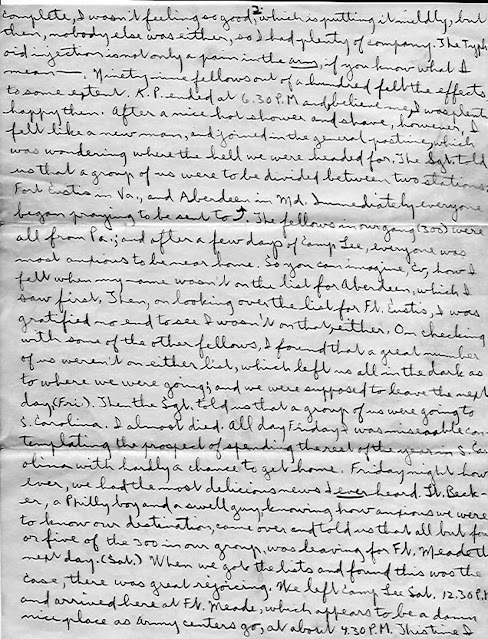 2
complete, I wasn't feeling so good, which is putting it mildly, but
then, nobody else was either, so I had plenty of company. The Typh-
oid injection is not only a pain in the arm, if you know what I
mean—. Ninety-nine fellows out of a hundred felt the effects
to some extent. K.P. ended at 6.30 P.M and believe me, I was plenty
happy then. After a nice hot shower and shave, however, I
felt like a new man, and joined in the general pastime, which
was wondering where the hell we were headed for. The Sgt. told
us that a group of us were to be divided between two stations:
Fort Eustis in Va., and Aberdeen in Md. Immediately everyone
began praying to be sent to. The fellows in our gang (300) were
all from Pa.; and after a few days of Camp Lee, everyone was
most anxious to be near home. So you can imagine, Ev, how I
felt when my name wasn't on the list for Aberdeen, which I
saw first. Then, on looking over the list for Ft. Eustis, I was
gratified no end to see I wasn't on that either. On checking
with some of the other fellows, I found that a great number
of us weren't on either list, which left us all in the dark as
to where we were going; and we were supposed to leave the next
day (Fri). Then the Sgt. told us that a group of us were going to
S. Carolina. I almost died. All day Friday I was miserable con-
templating the prospect of spending the rest of the year in S. Car-
olina with hardly a chance to get home. Friday night how-
ever, we had the most delicious news I ever heard. Lt. Beck-
er, a Philly boy and a swell guy, knowing how anxious we were
to know our destination, came over and told us that all but four
or five of the 300 in our group, was leaving for Ft. Meade the
next day. (Sat.) When we got the lists and found this was the
case, there was great rejoicing. We left Camp Lee Sat. 12.30 P.M
and arrived here at Ft. Meade, which appears to be a damn
nice place as Army centers go, at about 4.30 P.M. I